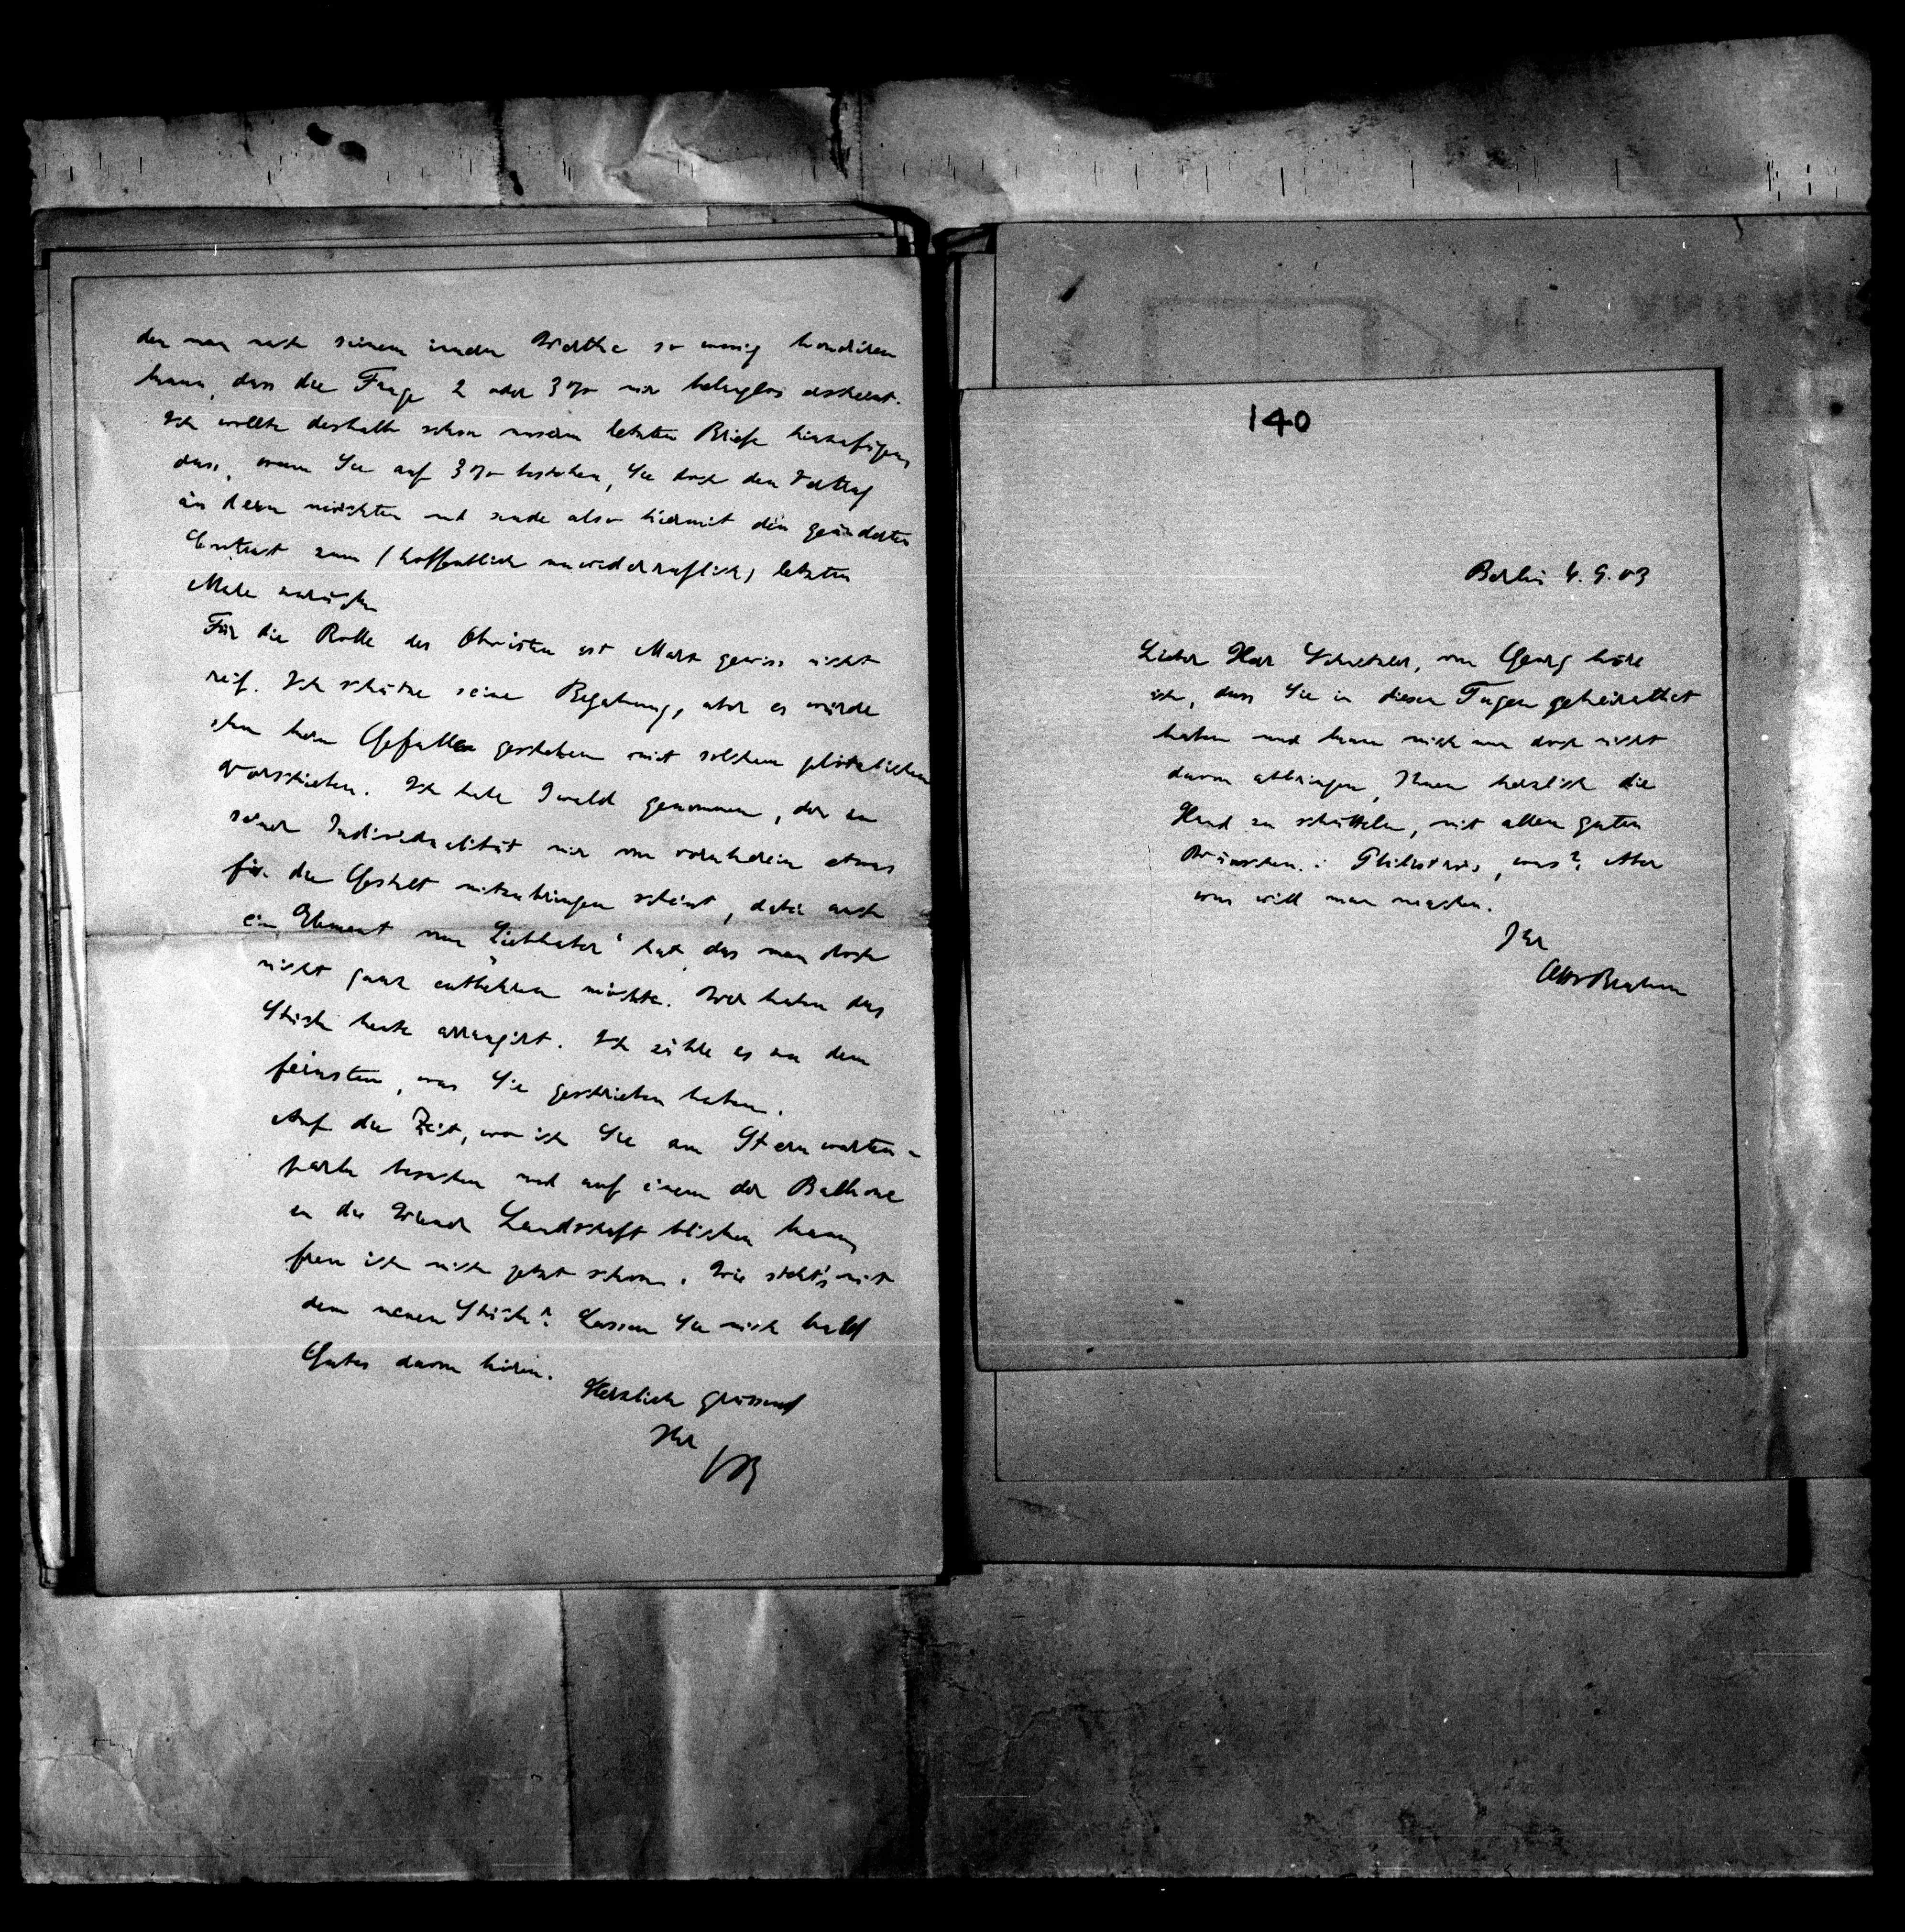 den man nach seinem innern Werthe so wenig honoriren
kann, dass die Frage 2 oder 3 % mir belanglos erscheint.
Ich wollte deshalb schon unserm letzten Briefe hinzufügen,
dass, wenn Sie auf 3 % bestehen, Sie doch den Vertrag
ändern möchten und sende also hiermit den geänderten
Entwurf zum (hoffentlich unwiderruflich) letzten
Male zurück.
Für die Rolle des Christian ist Marx gewiss nicht
reif. Ich schätze seine Begabung, aber es würde
ihm kein Gefallen geschehen mit solchem plötzlichen
Vorschieben. Ich habe Iwald genommen, der in
seiner Individualität mir von vornherein etwas
für die Gestalt mitzubringen scheint, dabei auch
ein Element vom „Liebhaber“ hat, das man doch
nicht ganz entbehren möchte. Wir haben das
Stück heute arrangirt. Ich zähle es zu dem
feinsten, was Sie geschrieben haben.
Auf die Zeit, wo ich Sie am Sternwarten-
parke besuchen und auf einem der Balkone
in die Wiener Landschaft blicken kann,
freu ich mich jetzt schon. Wie steht's mit
dem neuen Stück? Lassen Sie mich bald
Gutes davon hören.
Herzlich grüssend
Ihr
OB
140
Berlin 4.9.03
Lieber Herr Schnitzler, von Georg höre
ich, dass Sie in diesen Tagen geheirathet
haben und kann mich nun doch nicht
davon abbringen, Ihnen herzlich die
Hand zu schütteln, mit allen guten
Wünschen. Philiströs, was? Aber
was will man machen.
Ihr
Otto Brahm